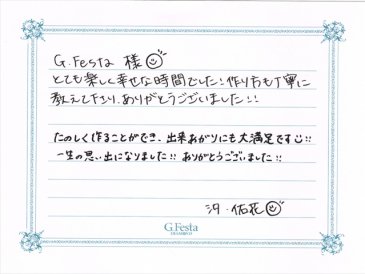 G.Festa 様
とても楽しく幸せな時間でした!作り方も丁寧に
教えて下さり、ありがとうございました!!
たのしく作ることができ、出来あがりにも大満足です!!
一生の思い出になりました!! ありがとうございました!!
汐・佑花
G.Festa